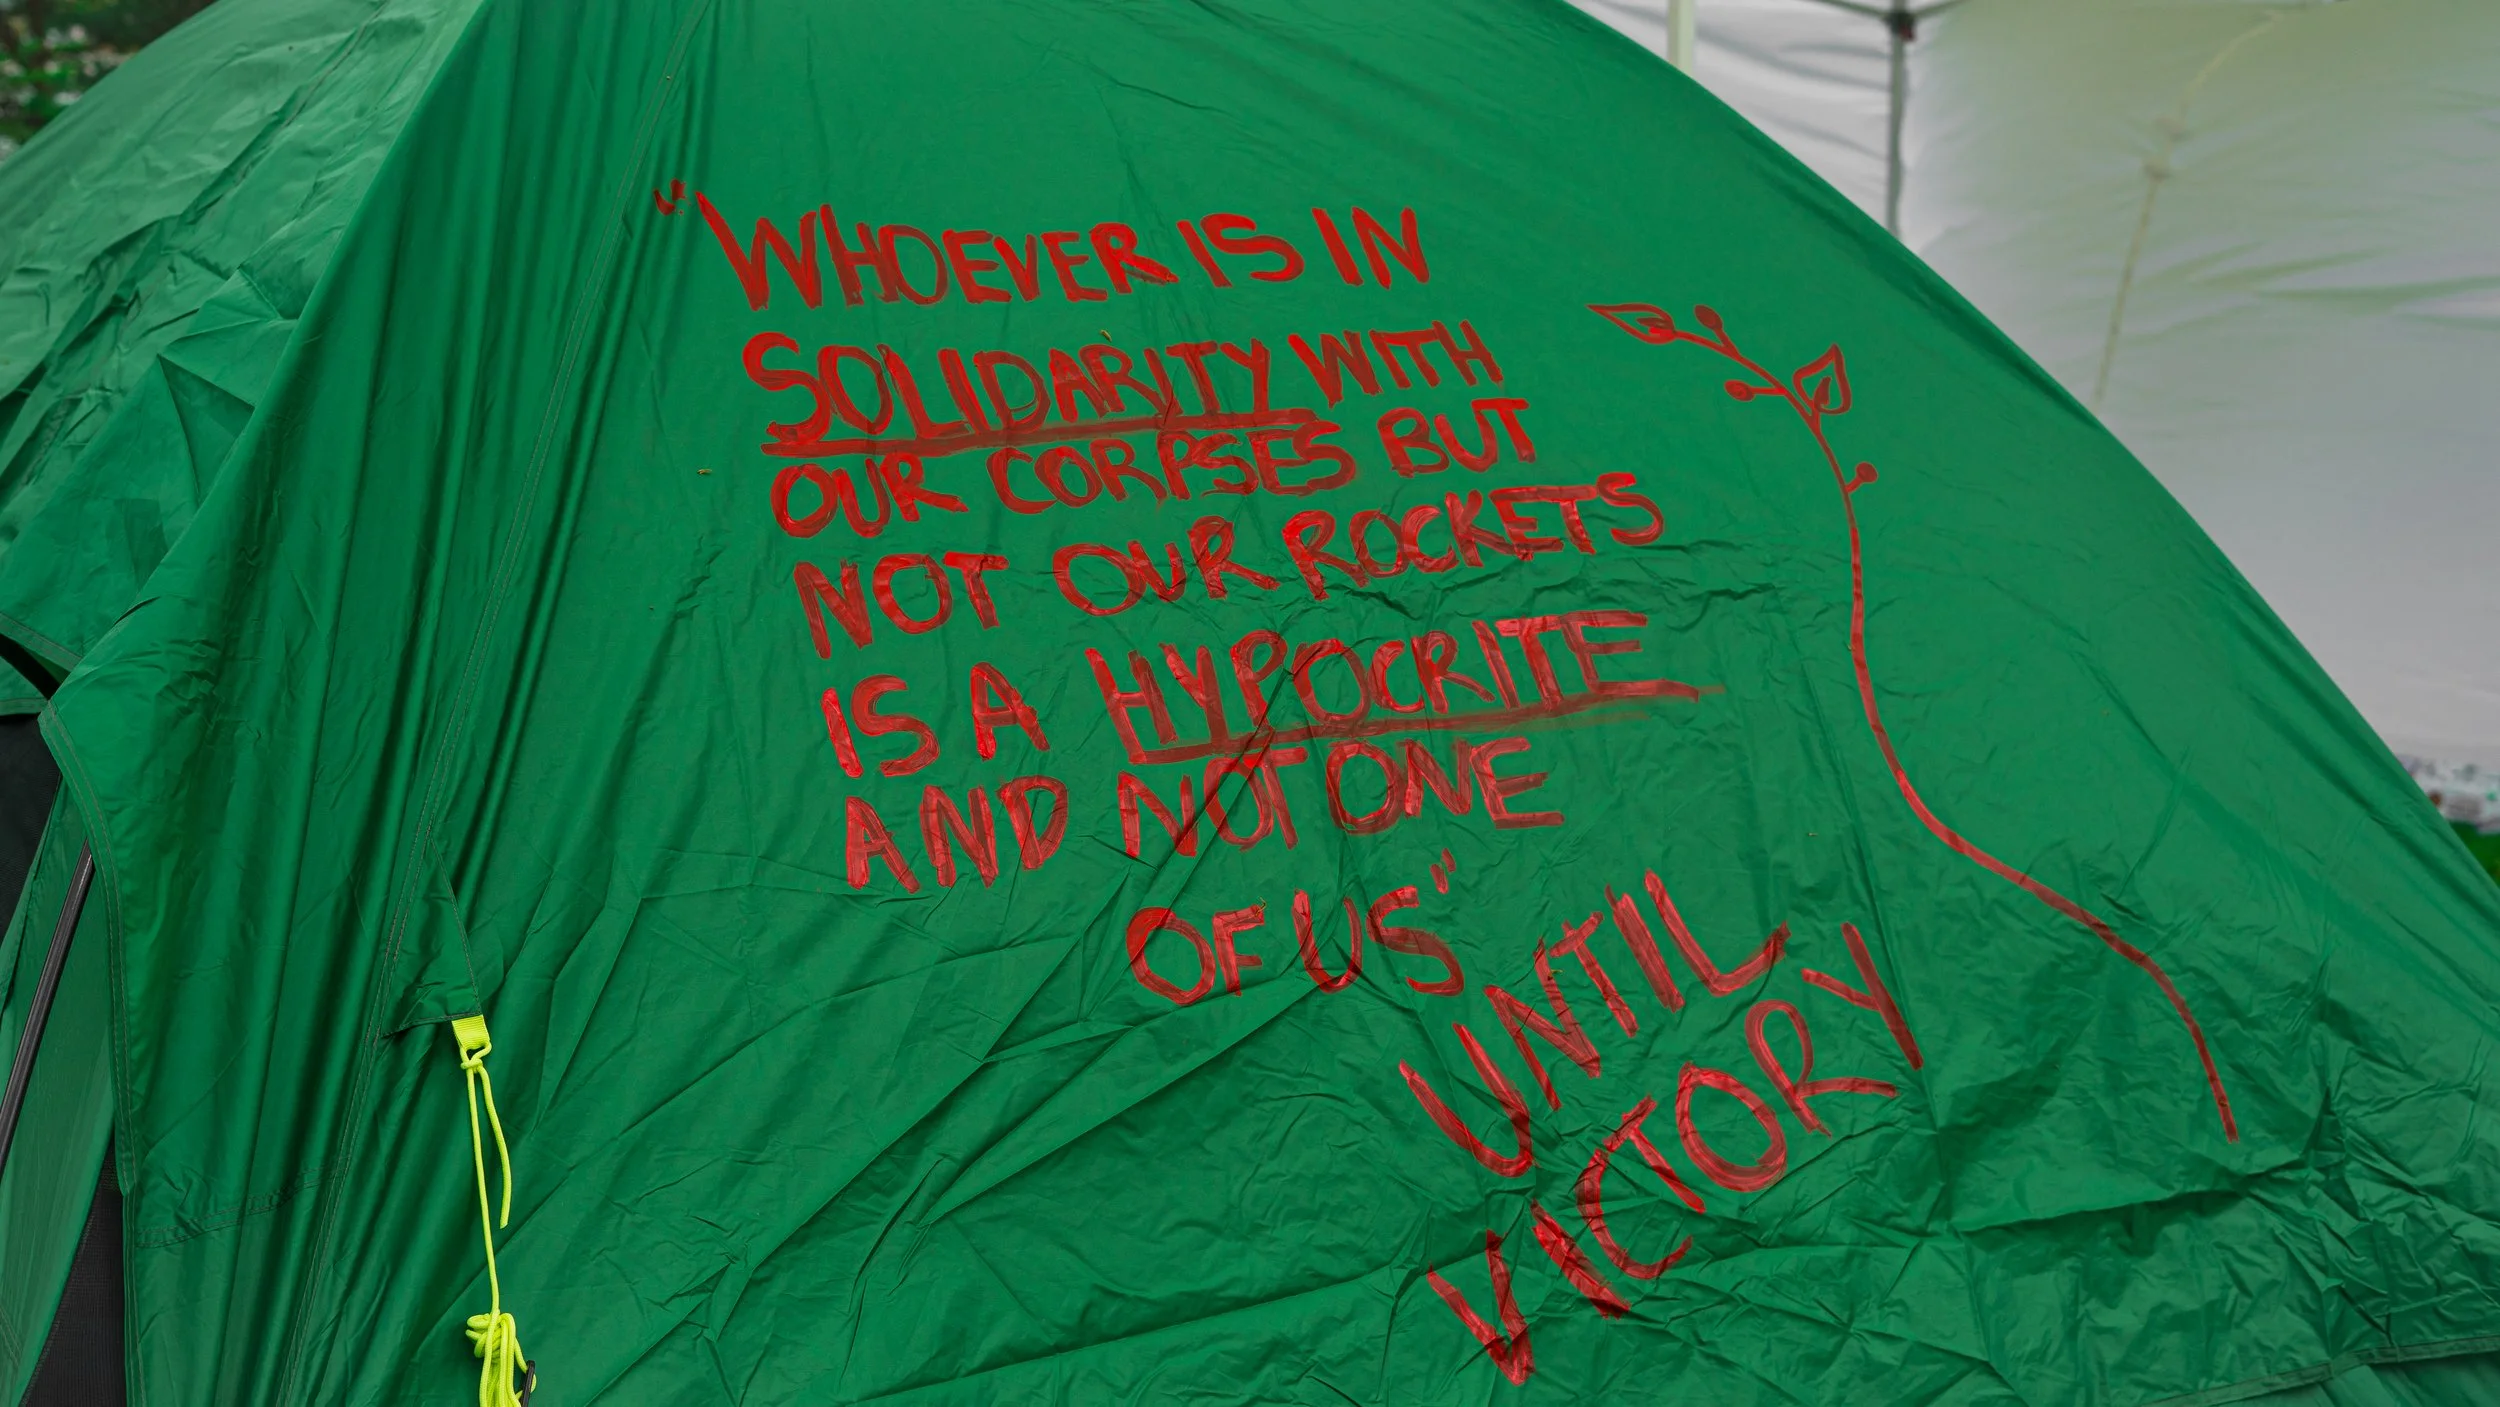 "WHOEVER IS IN
SOLIDARITY WITH
OUR CORPSES BUT
NOT OUR ROCKETS
IS A HYPOCRITE
AND NOT ONE
OF US"
UNTIL
VICTORY